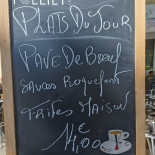 PLATS DU JOUR
PAVE DE BOEUF
SAUCES ROQUEFORT
FRITES MAISON
14,00